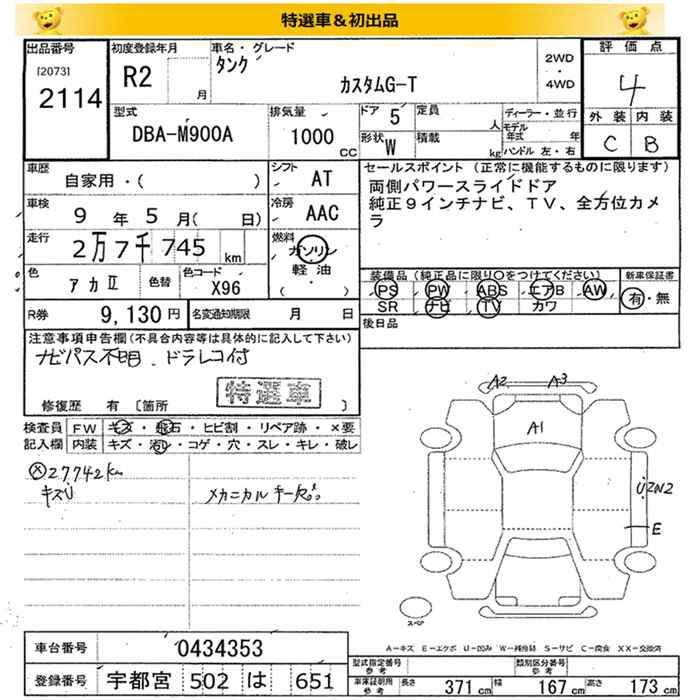 特選車＆初出品
出品番号
[2073]
2114
初度登録年月
R2
月
車名・グレード
タンク
カスタムG-T
2WD
・
4WD
評価点
4
外装 内装
C B
型式
DBA-M900A
排気量
1000
CC
ドア 5
形状 W
定員 人
積載 kg
ディーラー・並行
モデル年式 年
ハンドル 左・右
車歴
自家用・( )
シフト
AT
車検
9 年 5 月( 日)
冷房
AAC
走行
2万7千745 km
燃料
ガソリン
軽油
( ・ )
色
アカⅡ
色替
色コード
X96
セールスポイント (正常に機能するものに限ります)
両側パワースライドドア
純正9インチナビ、TV、全方位カメ
ラ
装備品(純正品に限り○をつけてください)
PS PW ABS エアB AW
SR ナビ TV カワ
新車保証書
有・無
R券 9,130 円
名変通知期限 月 日
後日品
注意事項申告欄(不具合内容等は具体的に記入して下さい)
ナビパス不明.ドラレコ付
特選車
修復歴 有 [箇所 ]
検査員 FW キズ・飛石・ヒビ割・リペア跡・×要
記入欄 内装 キズ・汚レ・コゲ・穴・スレ・キレ・破レ
㋱27742km
キズU
メカニカルキー欠
A2 A3
A1
U2W2
E
スペア
A-キズ E-エクボ U-凹み W-補修跡 S-サビ C-腐食 XX-交換済
車台番号 0434353
登録番号 宇都宮 502 は 651
型式指定番号 参考
類別区分番号 参考
車庫証明用 参考 長さ 371cm 幅 167cm 高さ 173cm